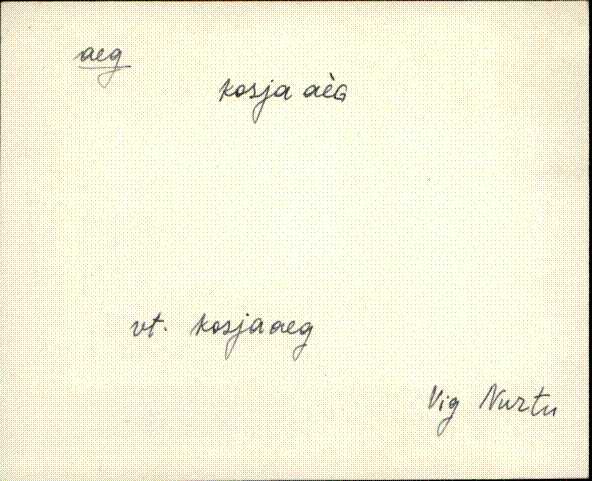 aeg
kosja aèG
vt. kosjaaeg
Vig Nurtu